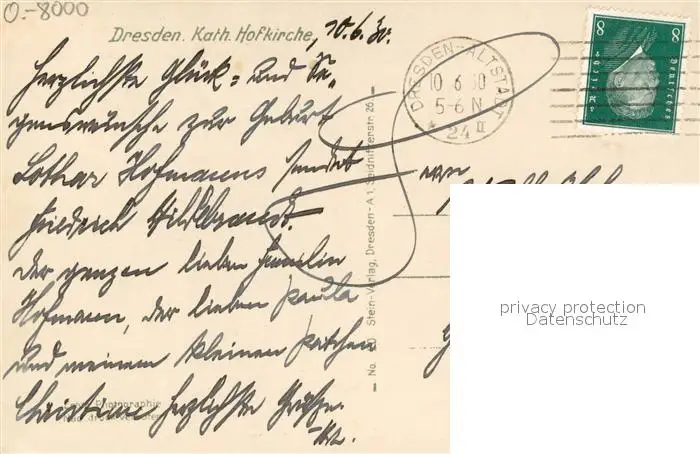 O.-8000
Dresden. Kath. Hofkirche, 10.6.30.
Herzlichste Glück- und Se-
genswünsche zur Geburt
Lothar Hofmanns sendet
Friedrich Hildebrandt.
Der ganzen lieben Familie
Hofmann, der lieben Paula
und meinem kleinen Patchen
Christine herzlichste Grüße.
DRESDEN-ALTSTADT
10 6 30
5-6 N
* 24 II
8 8
Deutsches Reich
No. Stein-Verlag, Dresden-A 1, Seidnitzerstr. 26
Photographie
privacy protection
Datenschutz